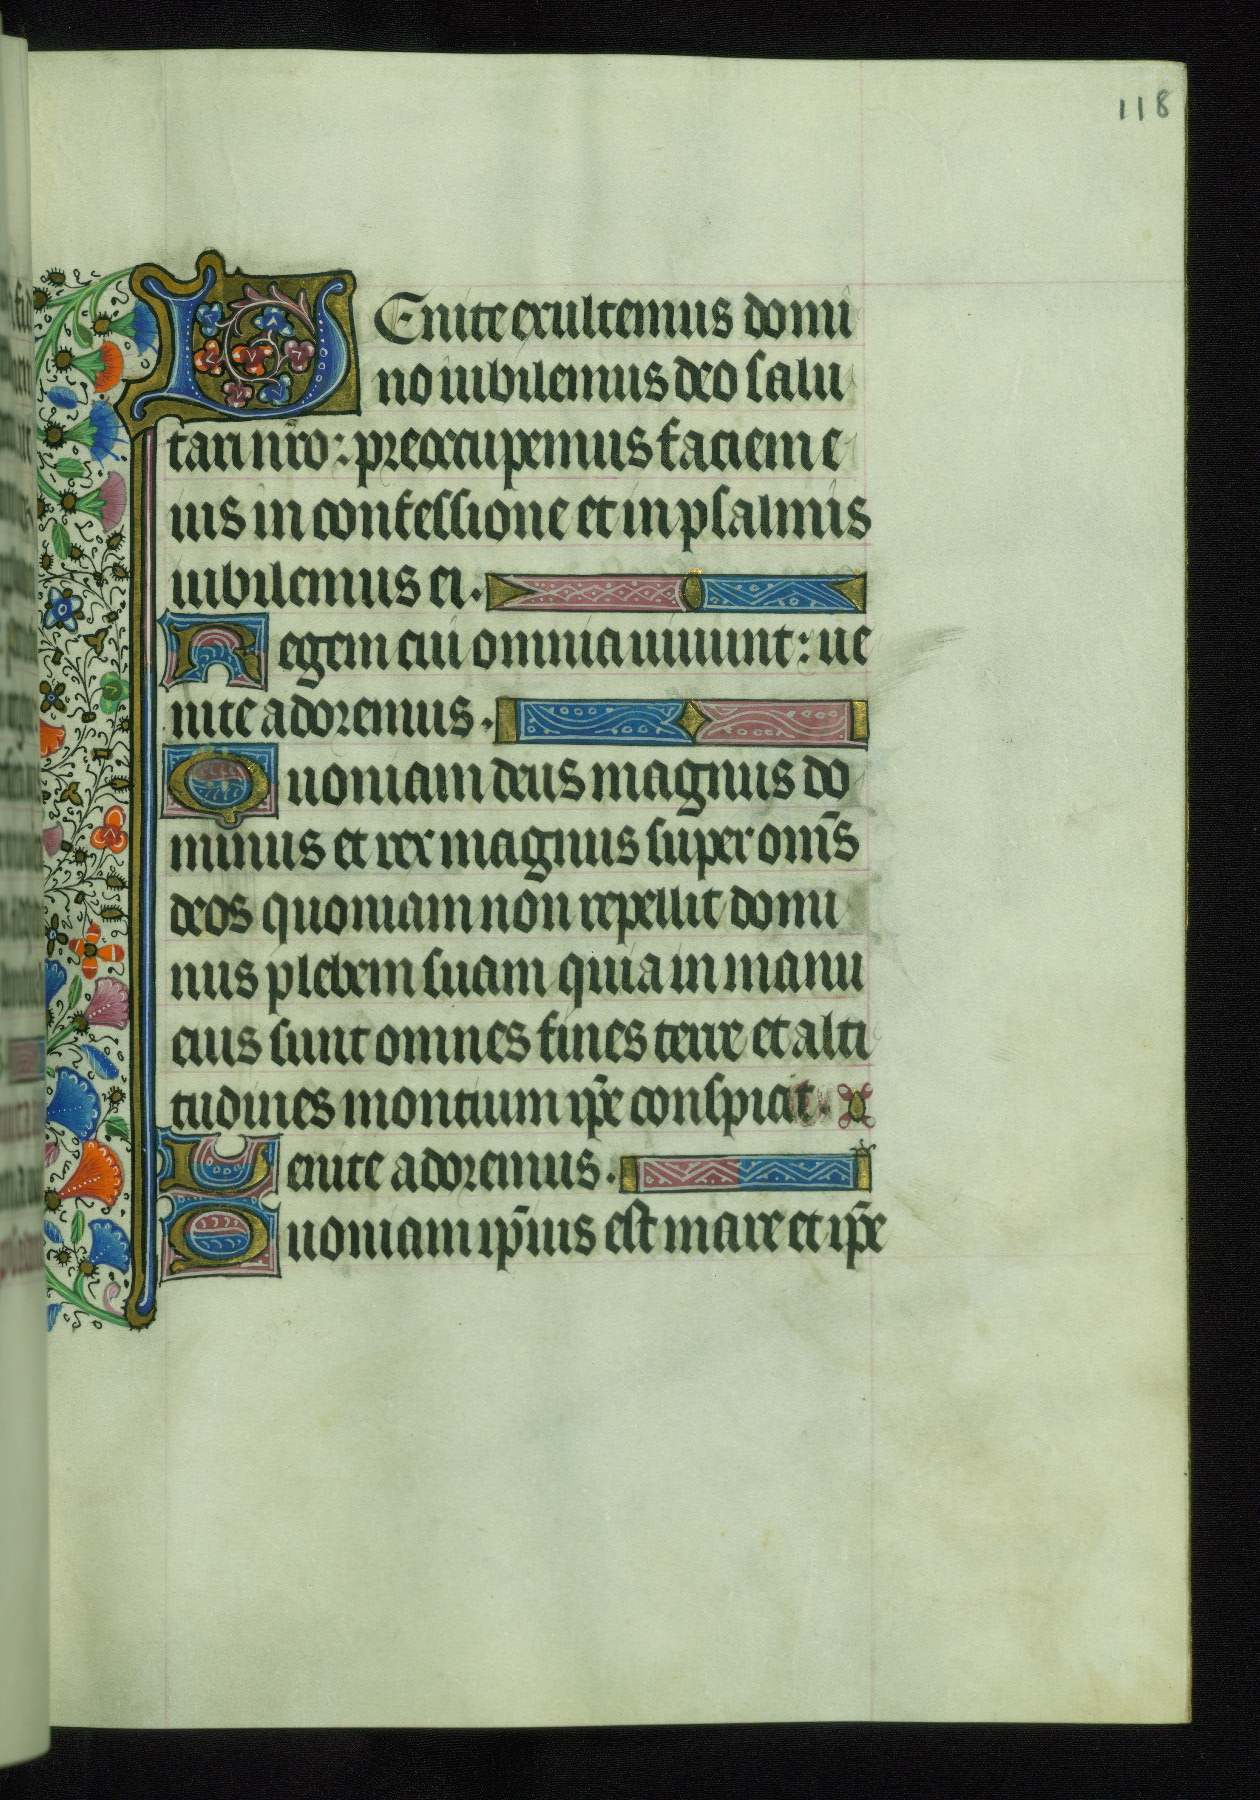 118
VEnite exultemus domi
no iubilemus deo salu
tari nr̄o: preoccupemus faciem e
ius in confessione et in psalmis
iubilemus ei.
Regem cui omnia uiuunt: ue
nite adoremus.
Quoniam deus magnus do
minus et rex magnus super om̄s
deos quoniam non repellit domi
nus plebem suam quia in manu
eius sunt omnes fines terre et alti
tudines montium ip̄e conspicit.
Uenite adoremus.
Quoniam ip̄ius est mare et ip̄e